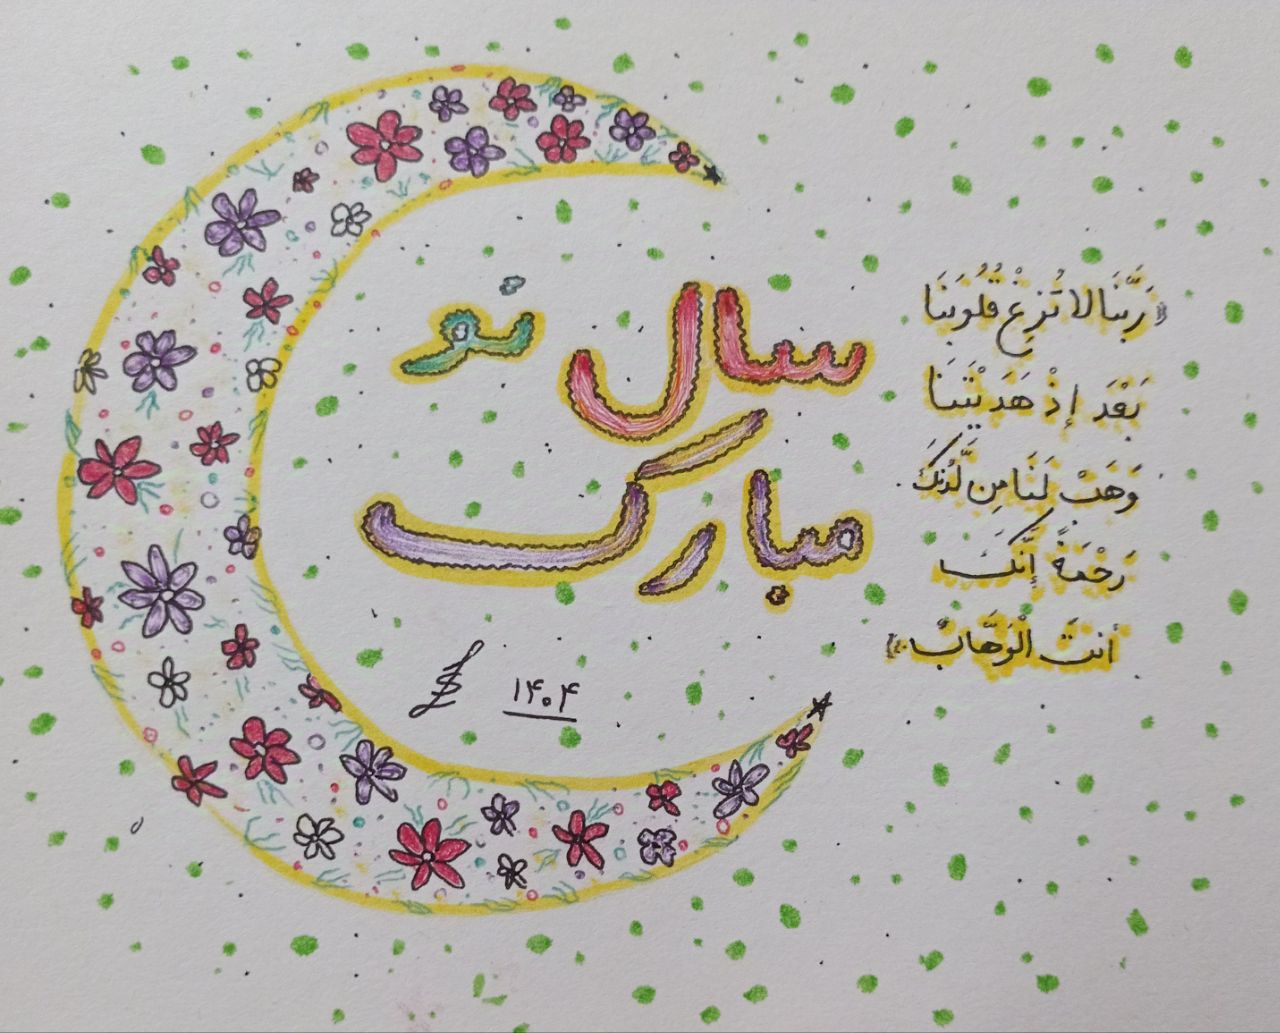 سال نو
مبارک
۱۴۰۴
«رَبَّنَا لَا تُزِغْ قُلُوبَنَا
بَعْدَ إِذْ هَدَيْتَنَا
وَهَبْ لَنَا مِن لَّدُنكَ
رَحْمَةً إِنَّكَ
أَنتَ الْوَهَّابُ»